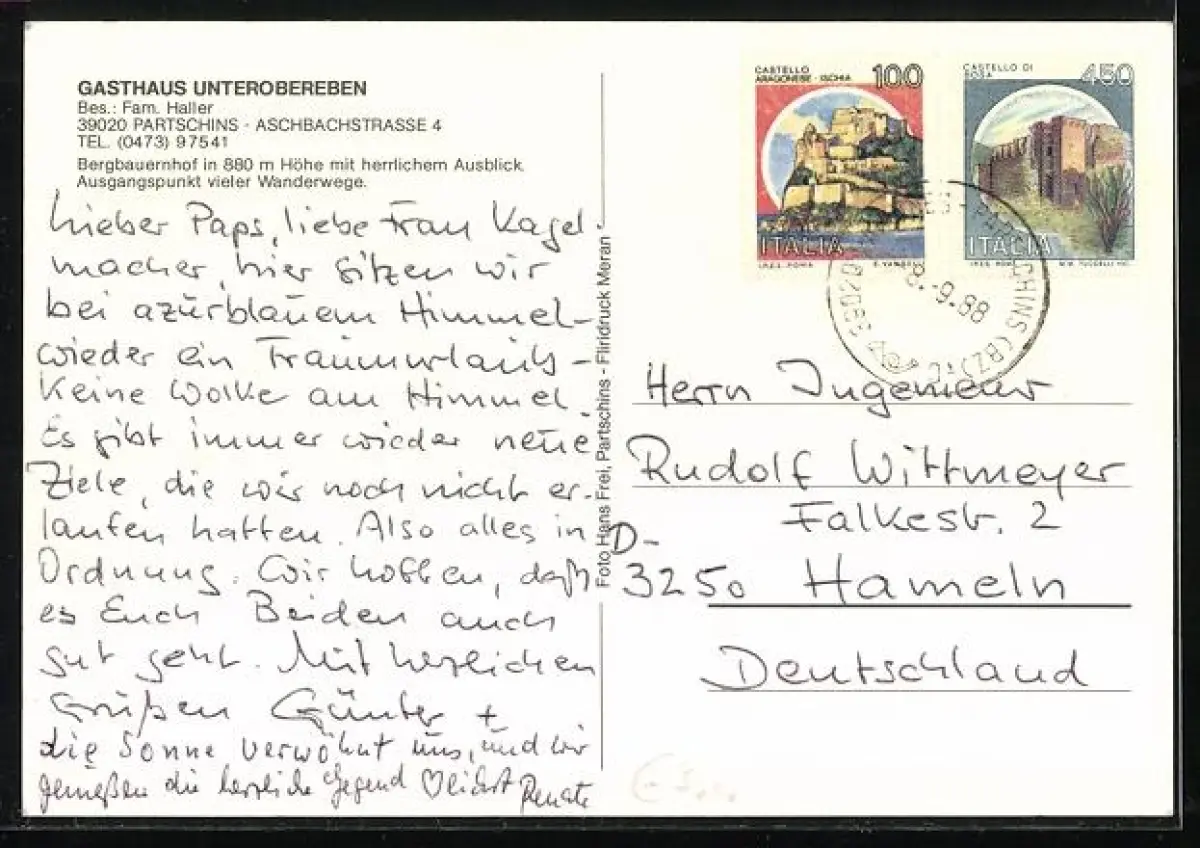 GASTHAUS UNTEROBEREBEN
Bes.: Fam. Haller
39020 PARTSCHINS - ASCHBACHSTRASSE 4
TEL. (0473) 97541
Bergbauernhof in 880 m Höhe mit herrlichem Ausblick.
Ausgangspunkt vieler Wanderwege.
Lieber Paps, liebe Frau Kagel-
macher, hier sitzen wir
bei azurblauem Himmel -
wieder ein Traumurlaub -
Keine Wolke am Himmel.
Es gibt immer wieder neue
Ziele, die wir noch nicht er-
laufen hatten. Also alles in
Ordnung. Wir hoffen, daß
es Euch Beiden auch
gut geht. Mit herzlichen
Grüßen Günter +
die Sonne verwöhnt uns, und wir
genießen die herrliche Gegend ♡lichst Renate
Foto Hans Frei, Partschins - Fliridruck Meran
CASTELLO
ARAGONESE - ISCHIA
100
ITALIA
I.P.Z.S. ROMA
CASTELLO DI
450
ITALIA
I.P.Z.S. ROMA
39020
PARTSCHINS (BZ)
8.-9.88
Herrn Ingenieur
Rudolf Wittmeyer
Falkestr. 2
D-
3250 Hameln
Deutschland